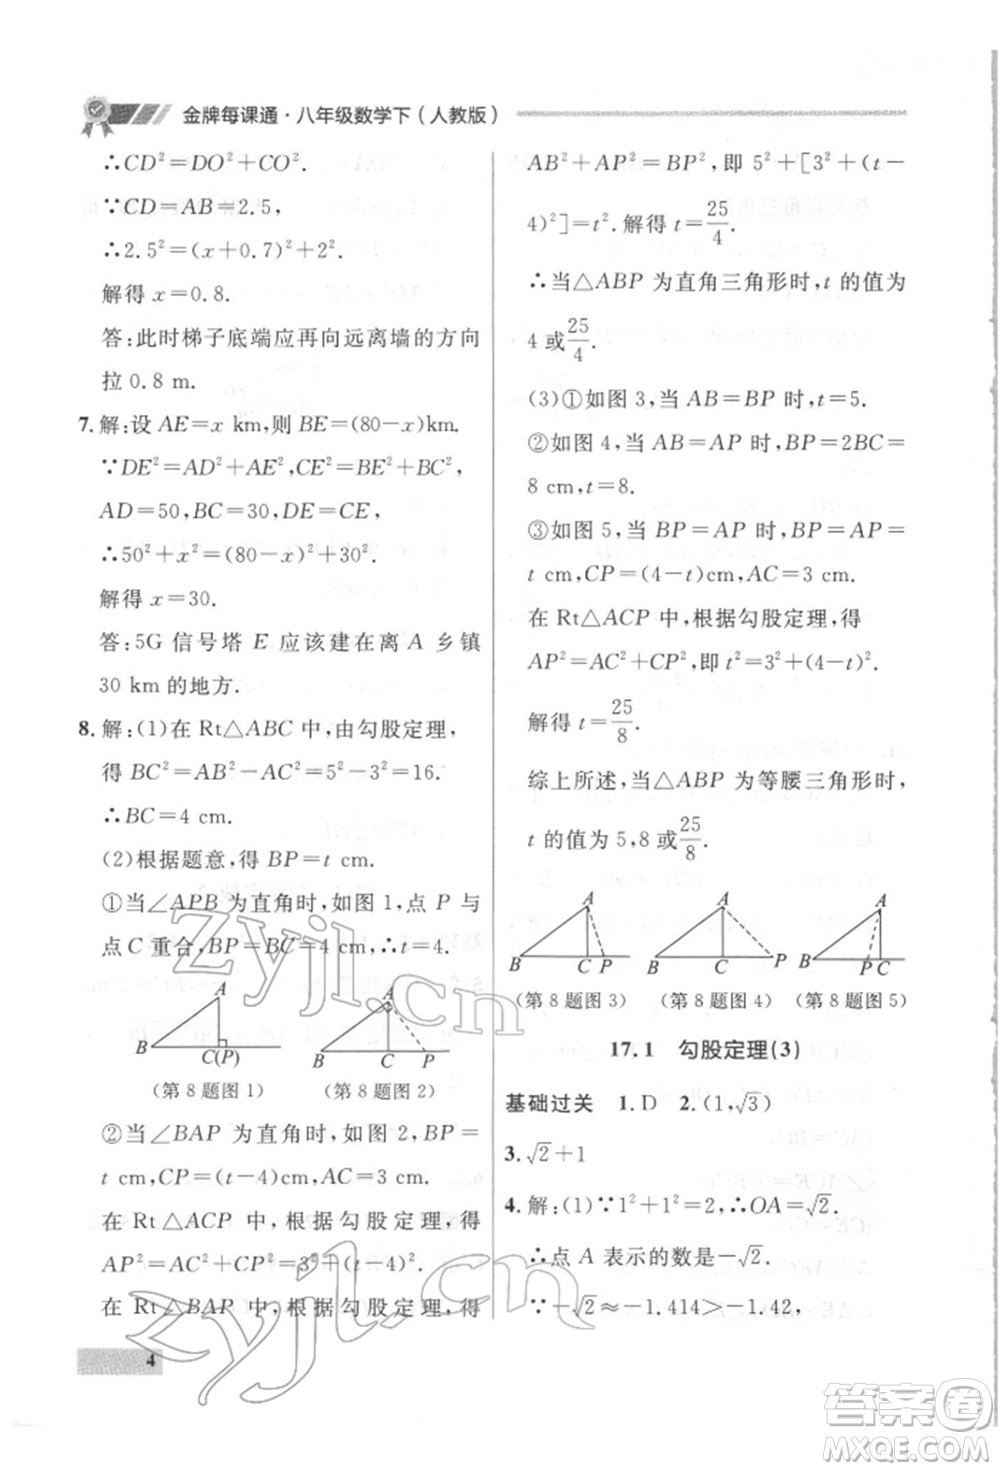 金牌每课通·八年级数学下（人教版）
∴CD²=DO²+CO².
∵CD=AB=2.5,
∴2.5²=(x+0.7)²+2².
解得 x=0.8.
答:此时梯子底端应再向远离墙的方向
拉 0.8 m.
7.解:设 AE=x km,则 BE=(80-x)km.
∵DE²=AD²+AE²,CE²=BE²+BC²,
AD=50,BC=30,DE=CE,
∴50²+x²=(80-x)²+30².
解得 x=30.
答:5G 信号塔 E 应该建在离 A 乡镇
30 km的地方.
8.解:(1)在 Rt△ABC 中,由勾股定理,
得 BC²=AB²-AC²=5²-3²=16.
∴BC=4 cm.
(2)根据题意,得 BP=t cm.
①当∠APB 为直角时,如图 1,点 P 与
点 C 重合,BP=BC=4 cm,∴t=4.
A
B
C(P)
(第 8 题图 1)
A
B
C
P
(第 8 题图 2)
②当∠BAP 为直角时,如图 2,BP=
t cm,CP=(t-4)cm,AC=3 cm.
在 Rt△ACP 中,根据勾股定理,得
AP²=AC²+CP²=3²+(t-4)².
在 Rt△BAP 中,根据勾股定理,得
4
AB²+AP²=BP²,即 5²+[3²+(t-
4)²]=t². 解得 t=25/4.
∴当△ABP 为直角三角形时,t 的值为
4 或25/4.
(3)①如图 3,当 AB=BP 时,t=5.
②如图 4,当 AB=AP 时,BP=2BC=
8 cm,t=8.
③如图 5,当 BP=AP 时,BP=AP=
t cm,CP=(4-t)cm,AC=3 cm.
在 Rt△ACP 中,根据勾股定理,得
AP²=AC²+CP²,即 t²=3²+(4-t)².
解得 t=25/8.
综上所述,当△ABP 为等腰三角形时,
t 的值为 5,8 或25/8.
A
B
C
P
(第 8 题图 3)
A
B
C
P
(第 8 题图 4)
A
B
P
C
(第 8 题图 5)
17.1 勾股定理(3)
基础过关 1.D 2.(1,√3)
3.√2+1
4.解:(1)∵1²+1²=2,∴OA=√2.
∴点 A 表示的数是-√2.
∵-√2≈-1.414>-1.42,
zyjl.cn
zyjl.cn
答案圈
MXQE.COM